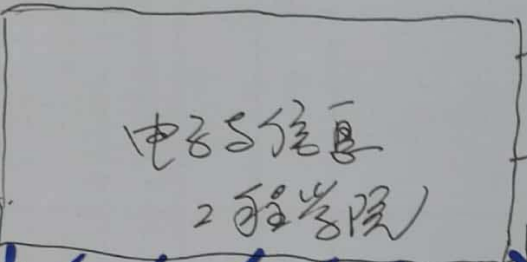 电子与信息
工程学院